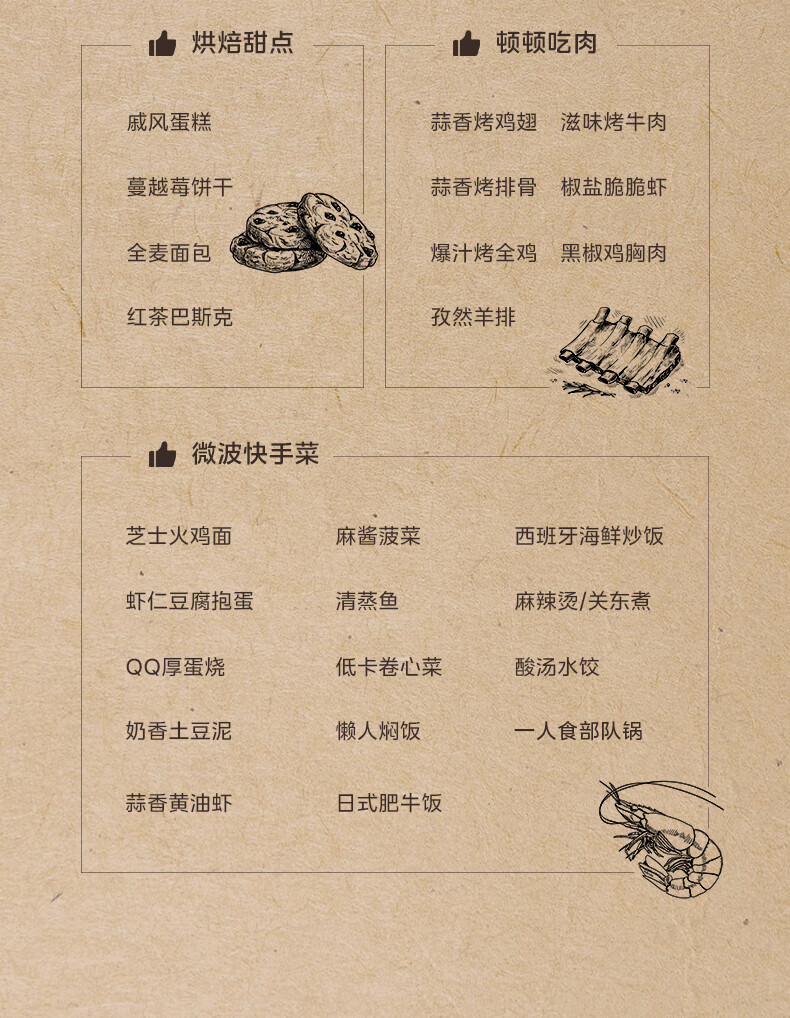 烘焙甜点
戚风蛋糕
蔓越莓饼干
全麦面包
红茶巴斯克
顿顿吃肉
蒜香烤鸡翅 滋味烤牛肉
蒜香烤排骨 椒盐脆脆虾
爆汁烤全鸡 黑椒鸡胸肉
孜然羊排
微波快手菜
芝士火鸡面 麻酱菠菜 西班牙海鲜炒饭
虾仁豆腐抱蛋 清蒸鱼 麻辣烫/关东煮
QQ厚蛋烧 低卡卷心菜 酸汤水饺
奶香土豆泥 懒人焖饭 一人食部队锅
蒜香黄油虾 日式肥牛饭